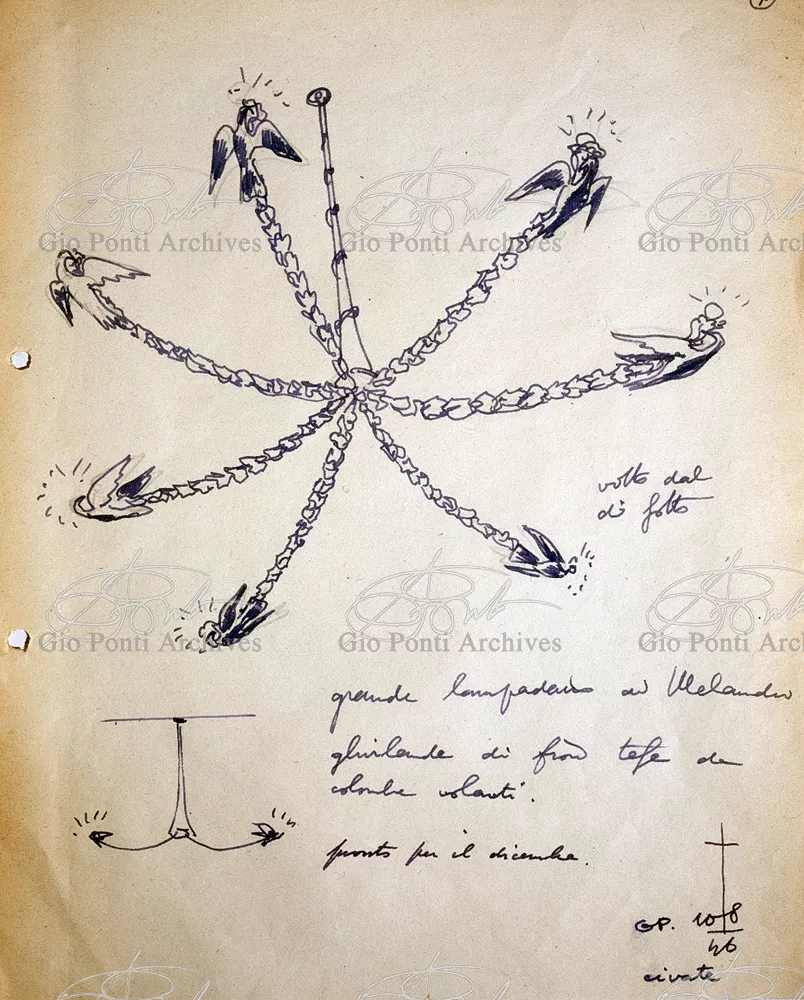 Gio Ponti Archives
Gio Ponti Archives
Gio Ponti Arc
volto dal
di sotto
Gio Ponti Archives
Gio Ponti Archives
Gio Ponti Arc
grande lampadario di Melandri
ghirlande di fiori tese da
colombe volanti.
pronto per il dicembre.
GP. 10 8
46
civate